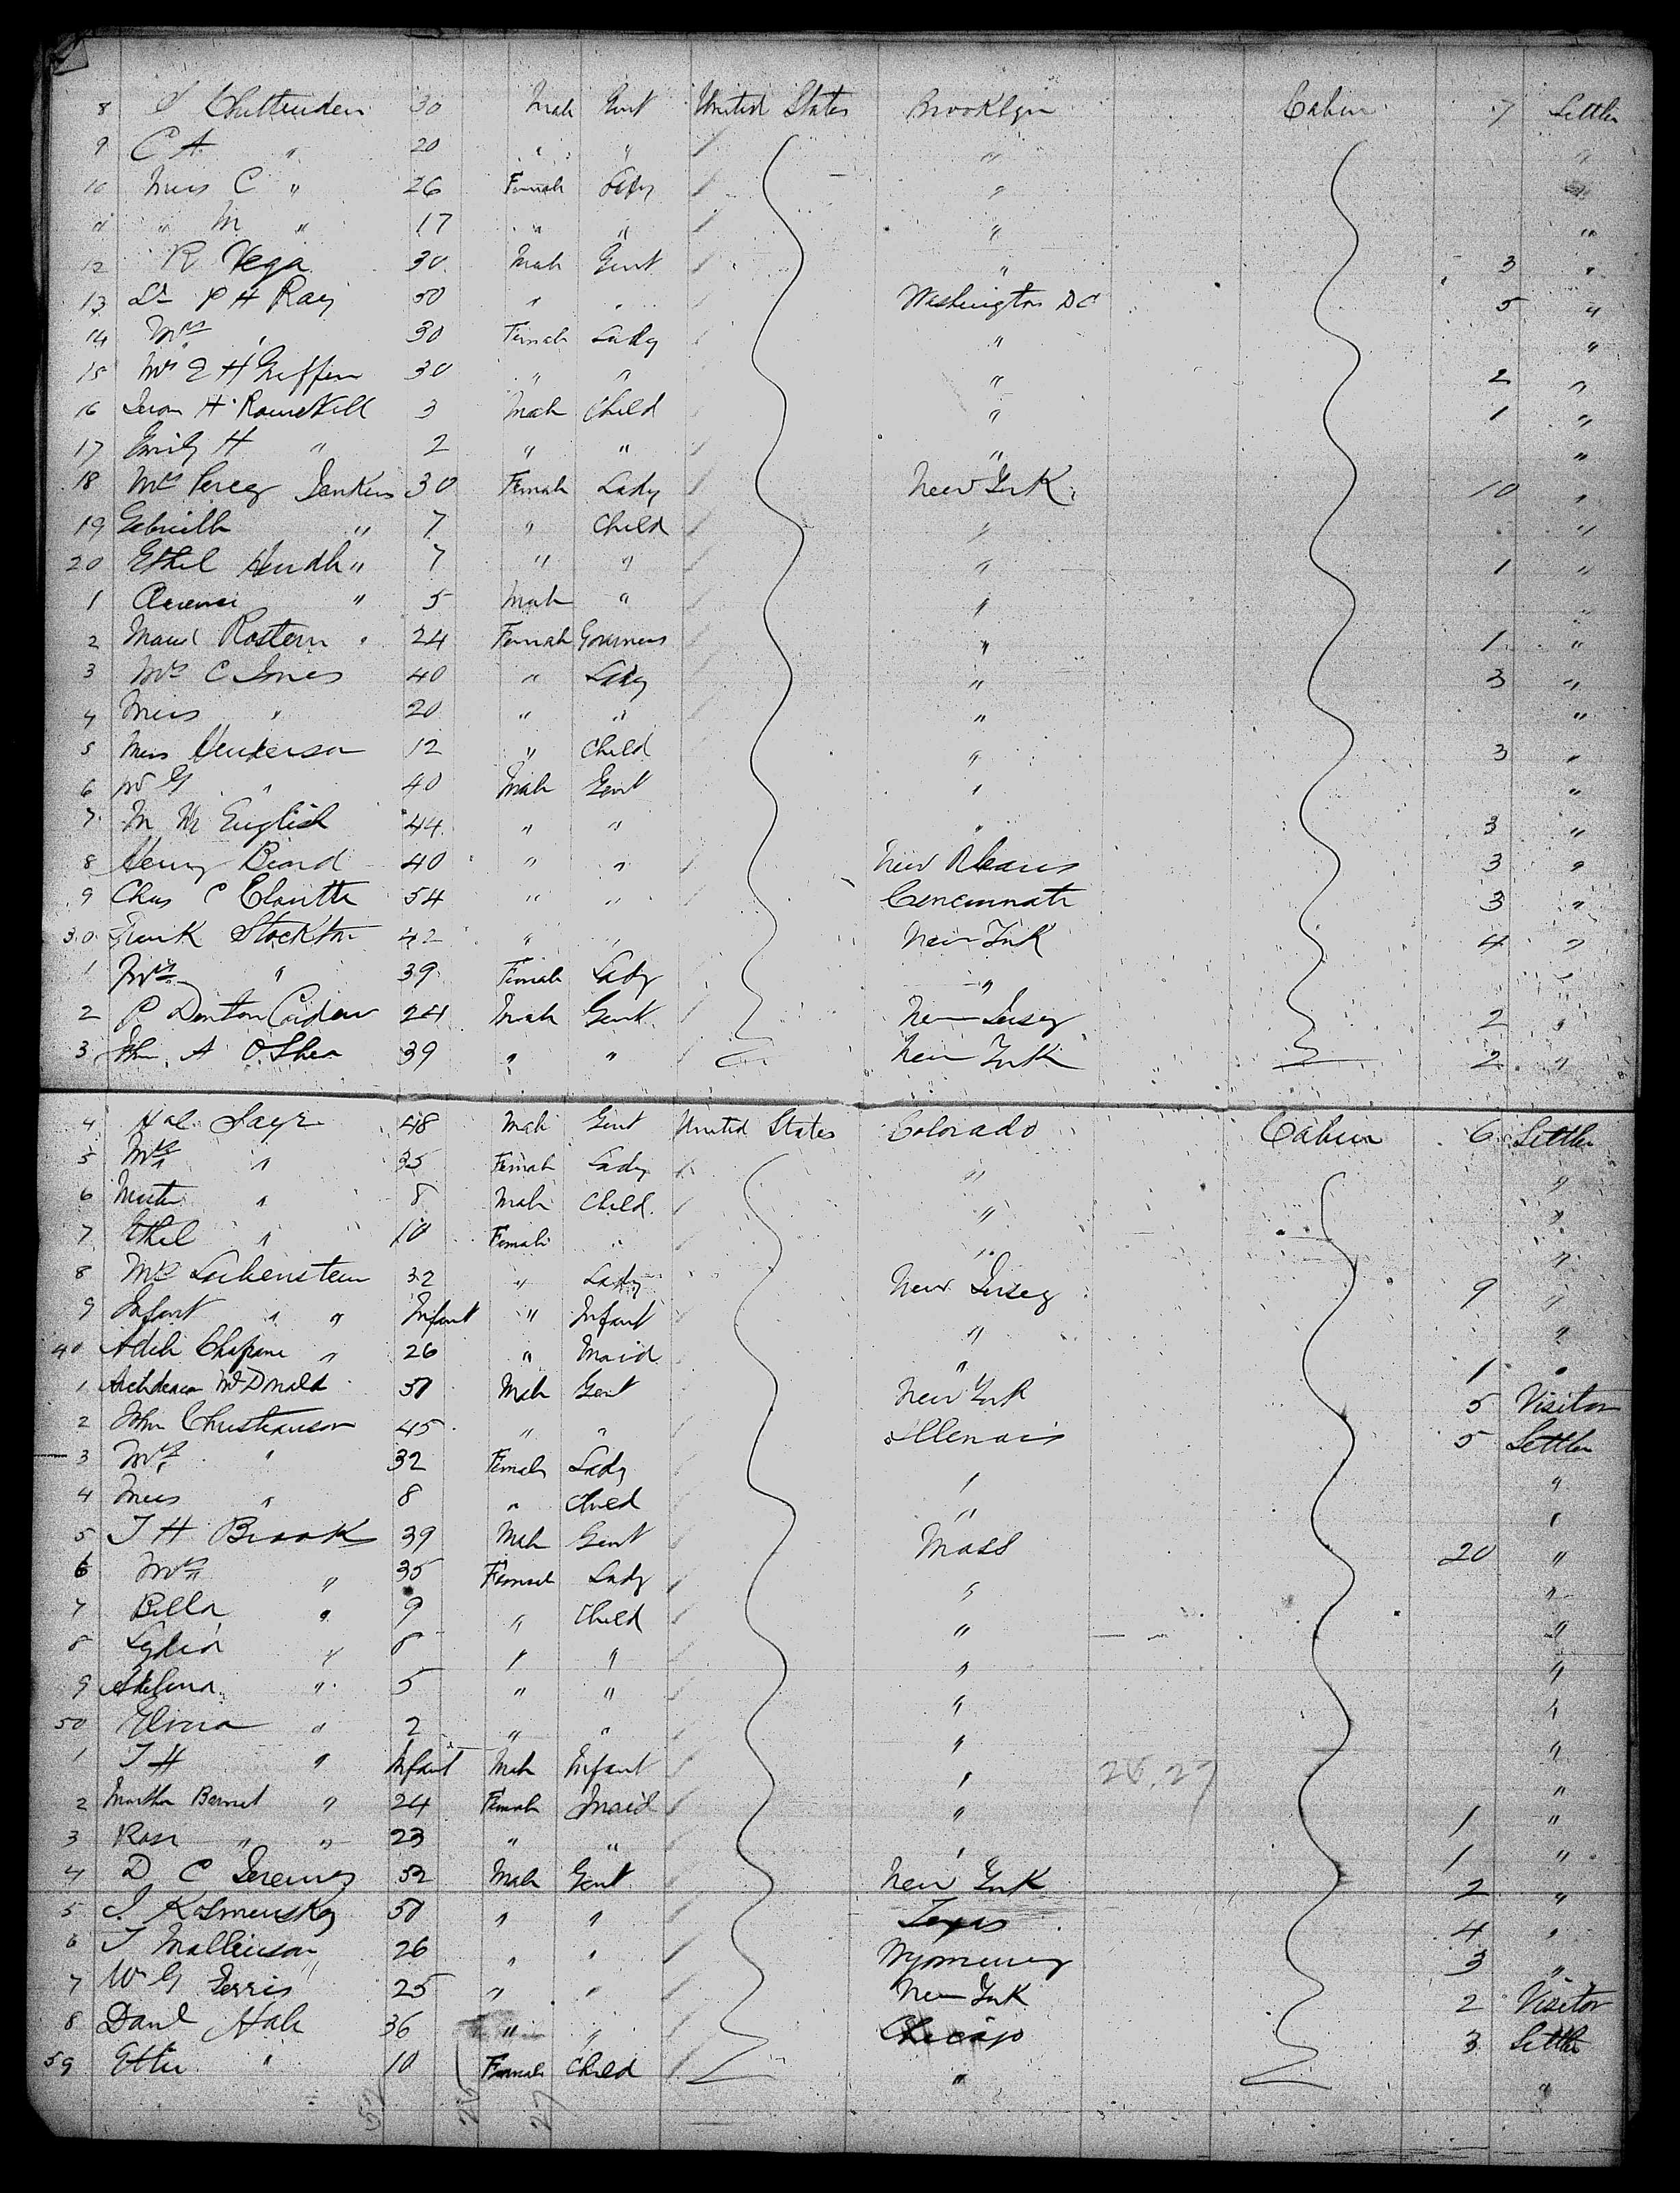 8 S Chittenden 30 Male Gent United States Brooklyn Cabin 7 Settler
9 C A " 20 " " " "
10 Miss C " 26 Female Lady " "
11 " M " 17 " " " "
12 R Vega 30 Male Gent " 3 "
13 Dr P H Ray 50 " " Washington DC 5 "
14 Mrs " 30 Female Lady " "
15 Mrs E H Griffin 30 " " " 2 "
16 H 3 Male Child " 1 "
17 Emily H " 2 " " " "
18 Mrs Percy Jenkins 30 Female Lady New York 10 "
19 Gabrielle " 7 " Child " "
20 Ethel " 7 " " " 1 "
1 Clarence " 5 Male " " "
2 Maud Rostern " 24 Female Governess " 1 "
3 Mrs C Jones 40 " Lady " 3 "
4 Miss " 20 " " " "
5 Miss Henderson 12 " Child " 3 "
6 W G " 40 Male Gent " "
7 M M English 44 " " " 3 "
8 Henry Beard 40 " " New Orleans 3 "
9 Chas C 54 " " Cencinnati 3 "
30 Frank Stockton 42 " " New York 4 "
1 Mrs " 39 Female Lady " "
2 P Denton 24 Male Gent New Jersey 2 "
3 John A O.Shea 39 " " New York 2 "
4 Hal Sayr 48 Male Gent United States Colorado Cabin 6 Settler
5 Mrs " 35 Female Lady " "
6 " 8 Male Child " "
7 Ethel " 10 Female " " "
8 Mrs 32 " Lady New Jersey 9 "
9 Infant " " Infant " Infant " "
40 Adele " 26 " Maid " 1 "
1 Archdeacon McDonald 50 Male Gent New York 5 Visitor
2 John Christianson 45 " " Illenois 5 Settler
3 Mrs " 32 Female Lady " "
4 Miss " 8 " Child " "
5 T H Brook 39 Male Gent Mass 20 "
6 Mrs " 35 Female Lady " "
7 Bella " 9 " Child " "
8 Lydia " 8 " " " "
9 Adelina " 5 " " " "
50 Elvira " 2 " " " "
1 T H " Infant Male Infant " "
28.27
2 Martha Bernet " 24 Female Maid " 1 "
3 Rose " " 23 " " " 1 "
4 D C 52 Male Gent New York 2 "
5 50 " " Texas 4 "
6 T Mallinson 26 " " Wyoming 3 "
7 W G Ferris 25 " " New York 2 Visitor
8 Danl Hale 36 " " Chicago 3 Settler
59 Ettie " 10 Female Child " "
27